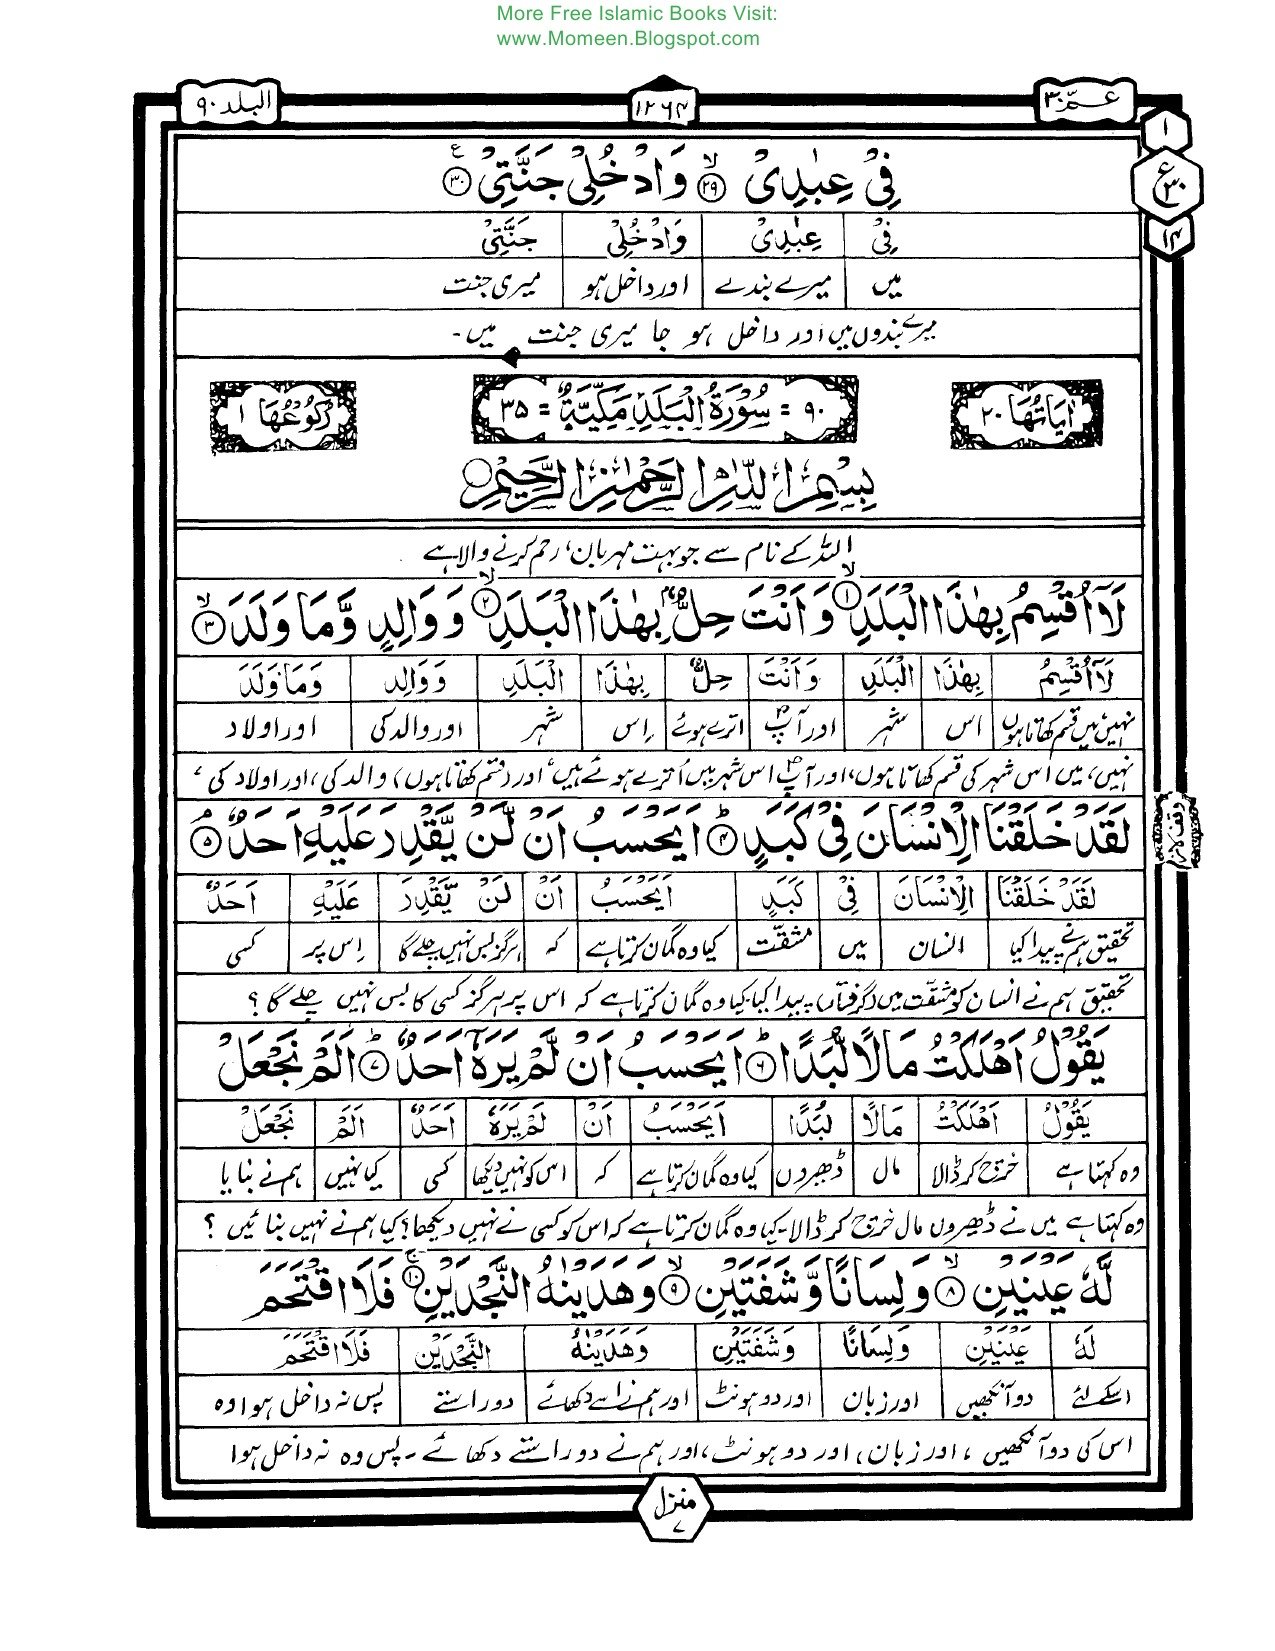 More Free Islamic Books Visit:
www.Momeen.Blogspot.com
عمّ ٣٠ ١٢٦٤ البلد ٩٠
١
ع ٣٠
١٤
فِیْ عِبٰدِیْ ﴿٢٩﴾ وَادْخُلِیْ جَنَّتِیْ ﴿٣٠﴾
فِیْ عِبٰدِیْ وَادْخُلِیْ جَنَّتِیْ
میں میرے بندے اور داخل ہو میری جنت
میرے بندوں میں اور داخل ہو جا میری جنت میں۔
اٰیَاتُهَا ٢٠ ٩٠ = سُوْرَةُ الْبَلَدِ مَكِّیَّةٌ = ٣٥ رُكُوْعُهَا ١
بِسْمِ اللّٰهِ الرَّحْمٰنِ الرَّحِیْمِ
اللہ کے نام سے جو بہت مہربان، رحم کرنے والا ہے
لَاۤ اُقْسِمُ بِهٰذَا الْبَلَدِ ﴿١﴾ وَاَنْتَ حِلٌّۢ بِهٰذَا الْبَلَدِ ﴿٢﴾ وَوَالِدٍ وَّمَا وَلَدَ ﴿٣﴾
لَاۤ اُقْسِمُ بِهٰذَا الْبَلَدِ وَاَنْتَ حِلٌّۢ بِهٰذَا الْبَلَدِ وَوَالِدٍ وَمَا وَلَدَ
نہیں میں قسم کھاتا ہوں اس شہر اور آپؐ اترے ہوئے اِس شہر اور والد کی اور اولاد
نہیں، میں اس شہر کی قسم کھاتا ہوں، اور آپؐ اس شہر میں اُترے ہوئے ہیں، اور (قسم کھاتا ہوں) والد کی، اور اولاد کی،
لَقَدْ خَلَقْنَا الْاِنْسَانَ فِیْ كَبَدٍ ﴿٤﴾ اَیَحْسَبُ اَنْ لَّنْ یَّقْدِرَ عَلَیْهِ اَحَدٌ ﴿٥﴾
وقف لازم
لَقَدْ خَلَقْنَا الْاِنْسَانَ فِیْ كَبَدٍ اَیَحْسَبُ اَنْ لَنْ یَّقْدِرَ عَلَیْهِ اَحَدٌ
تحقیق ہم نے پیدا کیا انسان میں مشقّت کیا وہ گمان کرتا ہے کہ ہرگز بس نہیں چلے گا اِس پر کسی
تحقیق ہم نے انسان کو مشقّت میں (گرفتار) پیدا کیا۔ کیا وہ گمان کرتا ہے کہ اس پر ہرگز کسی کا بس نہیں چلے گا ؟
یَقُوْلُ اَهْلَكْتُ مَالًا لُّبَدًا ﴿٦﴾ اَیَحْسَبُ اَنْ لَّمْ یَرَهٗۤ اَحَدٌ ﴿٧﴾ اَلَمْ نَجْعَلْ
یَقُوْلُ اَهْلَكْتُ مَالًا لُبَدًا اَیَحْسَبُ اَنْ لَمْ یَرَهٗ اَحَدٌ اَلَمْ نَجْعَلْ
وہ کہتا ہے خرچ کر ڈالا مال ڈھیروں کیا وہ گمان کرتا ہے کہ اس کو نہیں دیکھا کسی کیا نہیں ہم نے بنایا
وہ کہتا ہے میں نے ڈھیروں مال خرچ کر ڈالا۔ کیا وہ گمان کرتا ہے کہ اس کو کسی نے نہیں دیکھا؟ کیا ہم نے نہیں بنائیں ؟
لَّهٗ عَیْنَیْنِ ﴿٨﴾ وَلِسَانًا وَّشَفَتَیْنِ ﴿٩﴾ وَهَدَیْنٰهُ النَّجْدَیْنِ ﴿١٠﴾ فَلَا اقْتَحَمَ
لَهٗ عَیْنَیْنِ وَلِسَانًا وَشَفَتَیْنِ وَهَدَیْنٰهُ النَّجْدَیْنِ فَلَا اقْتَحَمَ
اسکے لئے دو آنکھیں اور زبان اور دو ہونٹ اور ہم نے اسے دکھائے دو راستے پس نہ داخل ہوا وہ
اس کی دو آنکھیں، اور زبان، اور دو ہونٹ، اور ہم نے دو راستے دکھائے۔ پس وہ نہ داخل ہوا
منزل ٧